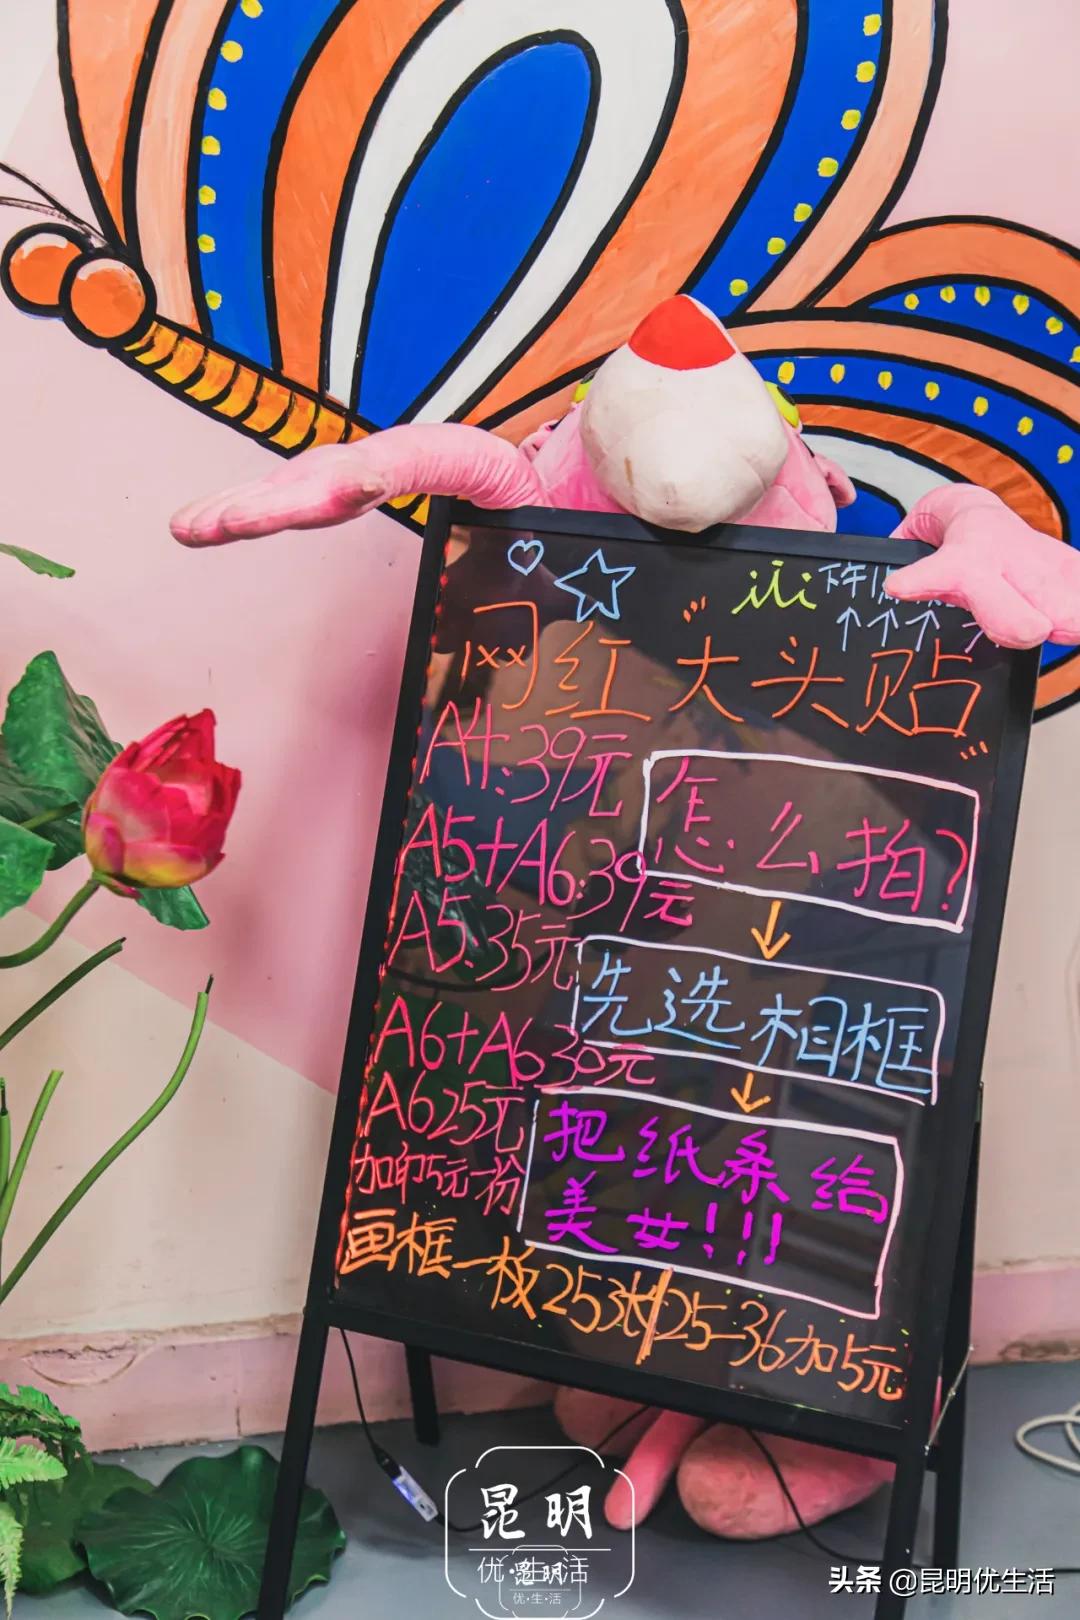 下午
网红"大头贴"
A4:39元
怎么拍?
A5+A6:39元
A5:35元
先选相框
A6+A6 30元
A6 25元
把纸条给
美女!!!
加印5元一份
画框一板25 25-36加5元
昆明
优·生·活
昆明
优·生·活
头条 @昆明优生活